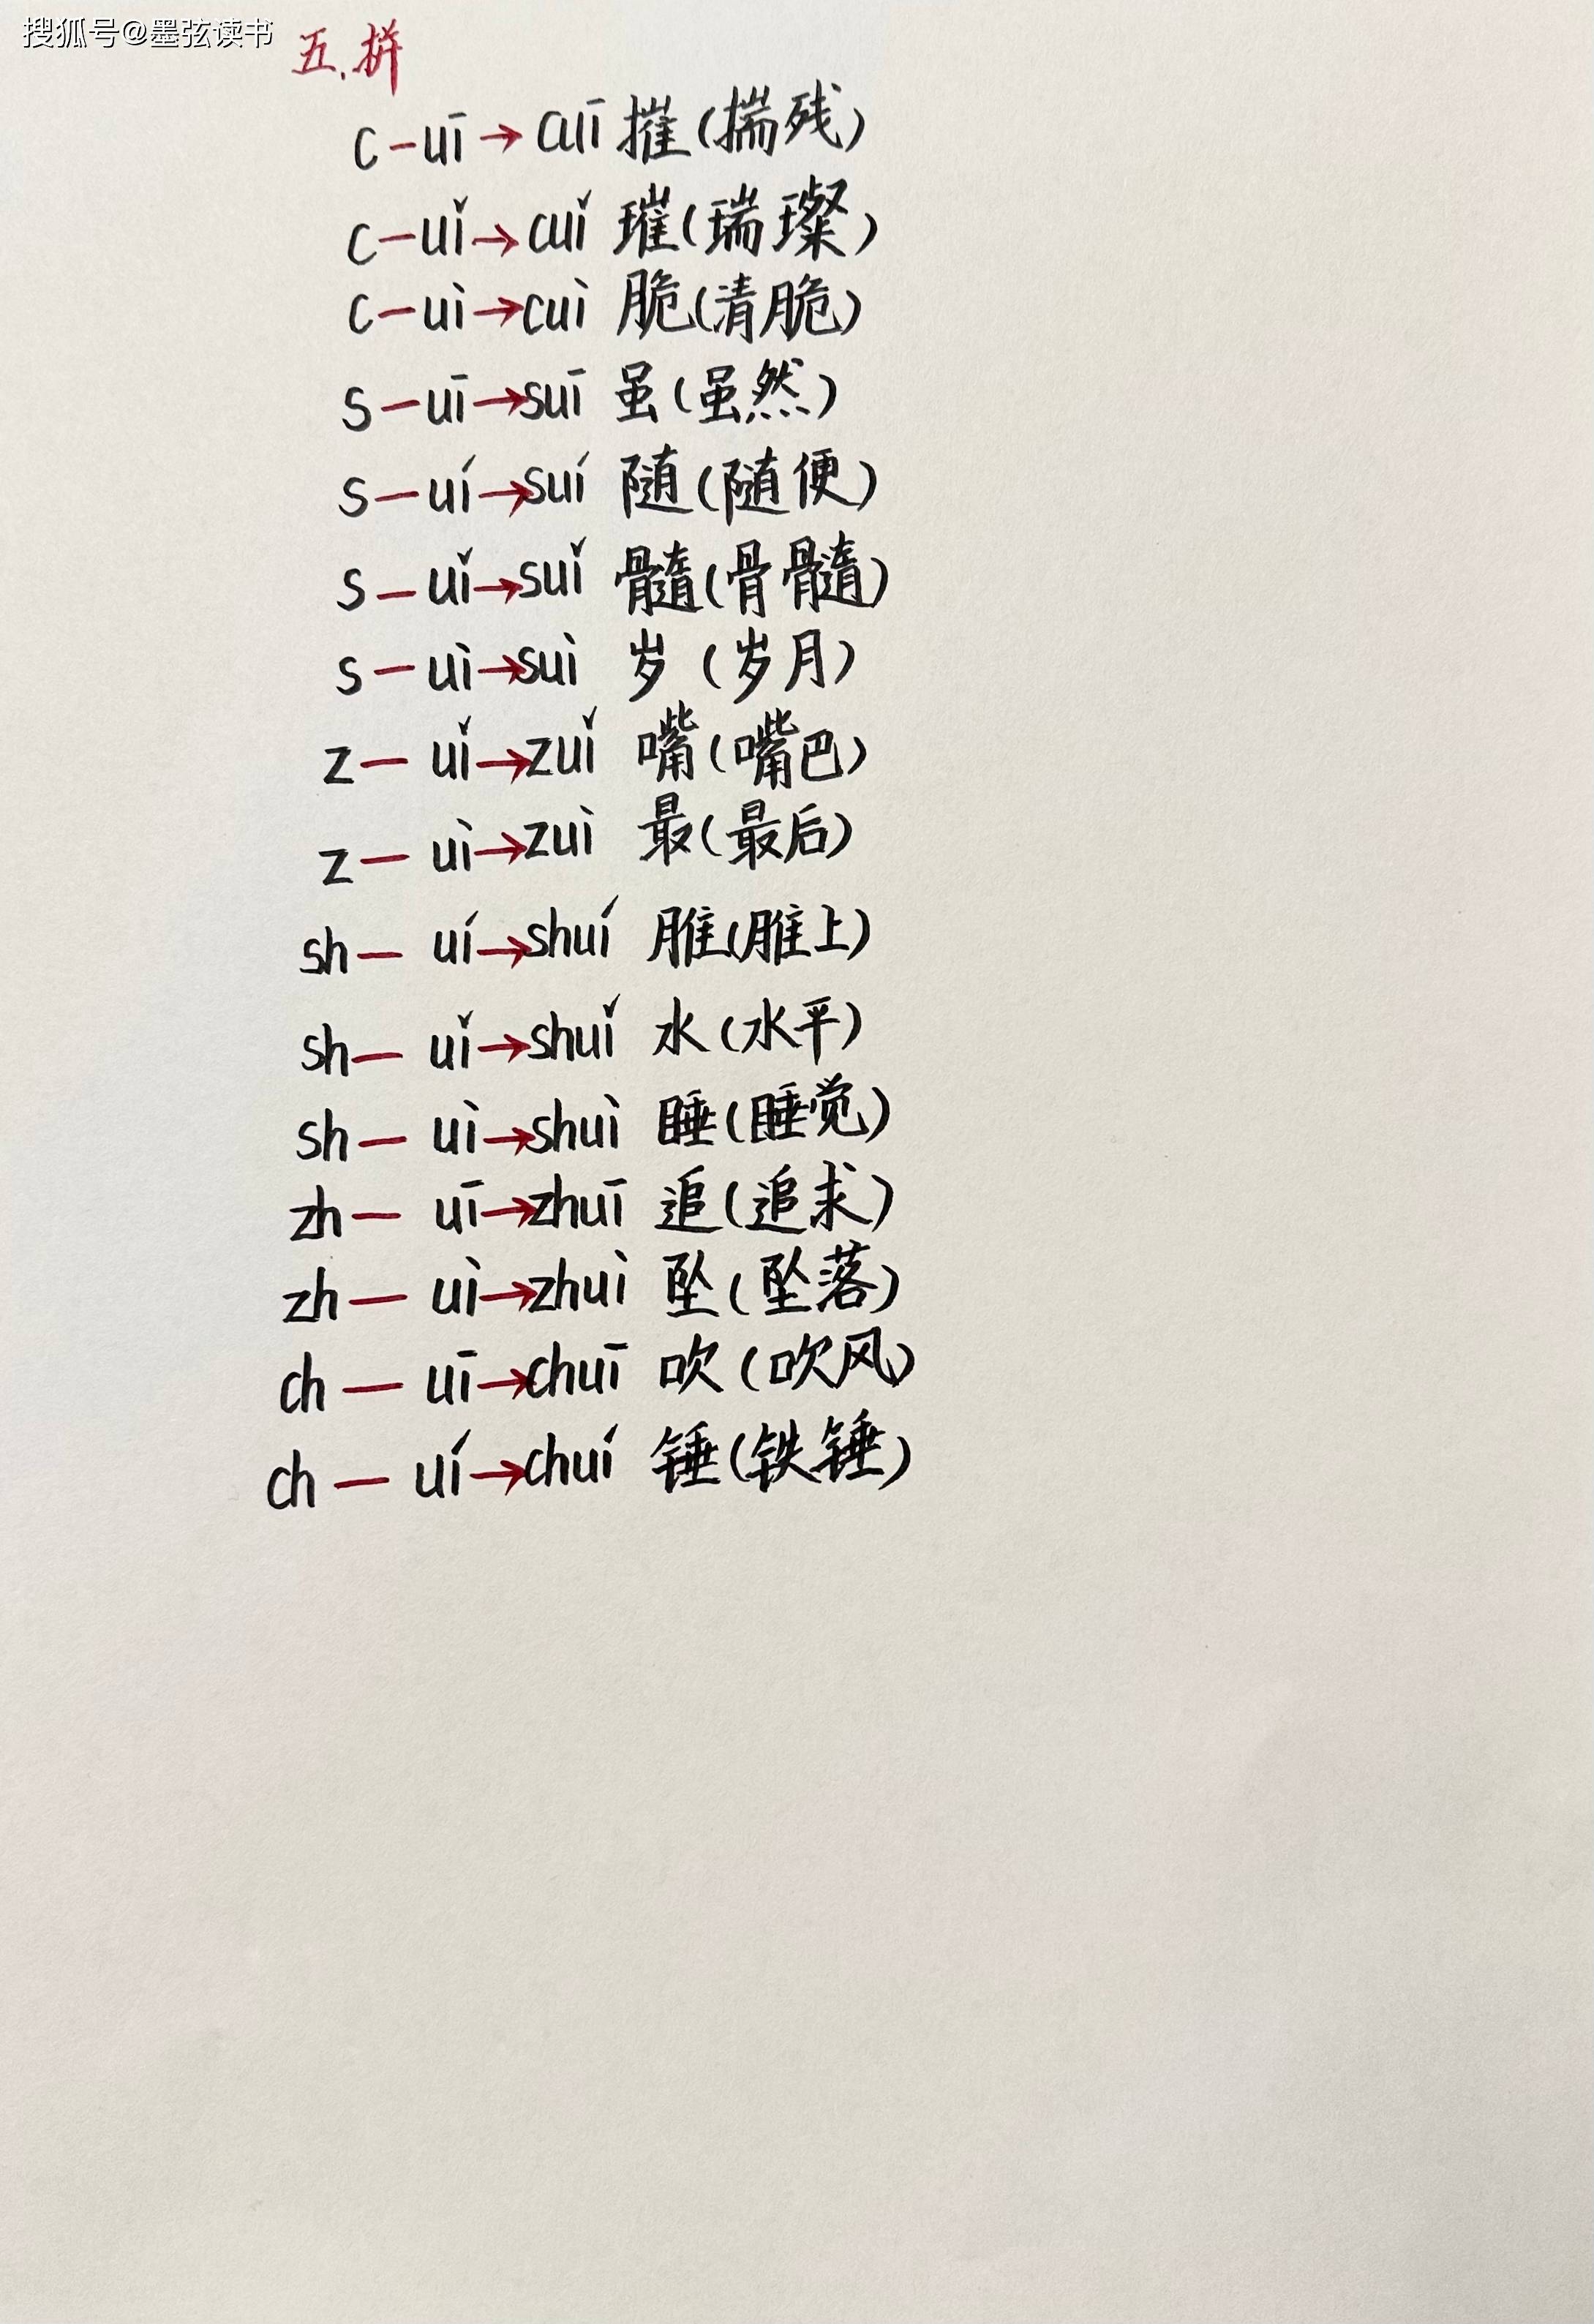 搜狐号@墨弦读书
五.拼
c-uī→cuī 摧(揣残)
c-uǐ→cuǐ 璀(瑞璨)
c-uì→cuì 脆(清脆)
s-uī→suī 虽(虽然)
s-uí→suí 随(随便)
s-uǐ→suǐ 髓(骨髓)
s-uì→suì 岁(岁月)
z-uǐ→zuǐ 嘴(嘴巴)
z-uì→zuì 最(最后)
sh-uí→shuí 脽(脽上)
sh-uǐ→shuǐ 水(水平)
sh-uì→shuì 睡(睡觉)
zh-uī→zhuī 追(追求)
zh-uì→zhuì 坠(坠落)
ch-uī→chuī 吹(吹风)
ch-uí→chuí 锤(铁锤)